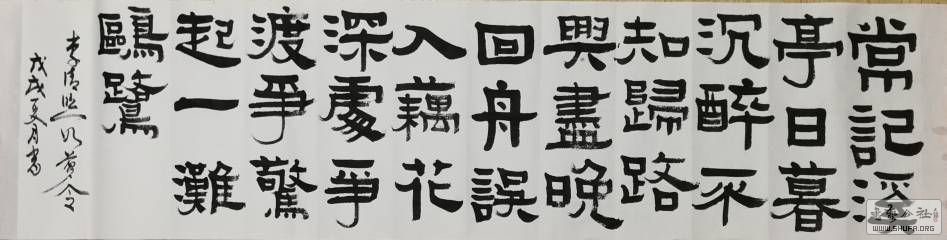 常記溪
亭日暮
沉醉不
知歸路
興盡晚
回舟誤
入藕花
深處爭
渡爭驚
起一灘
鷗鷺
李清照如夢令
戊戌夏月書
WWW.SHUFA.ORG